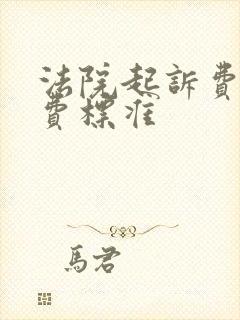 法院起訴費
費標准
馬君